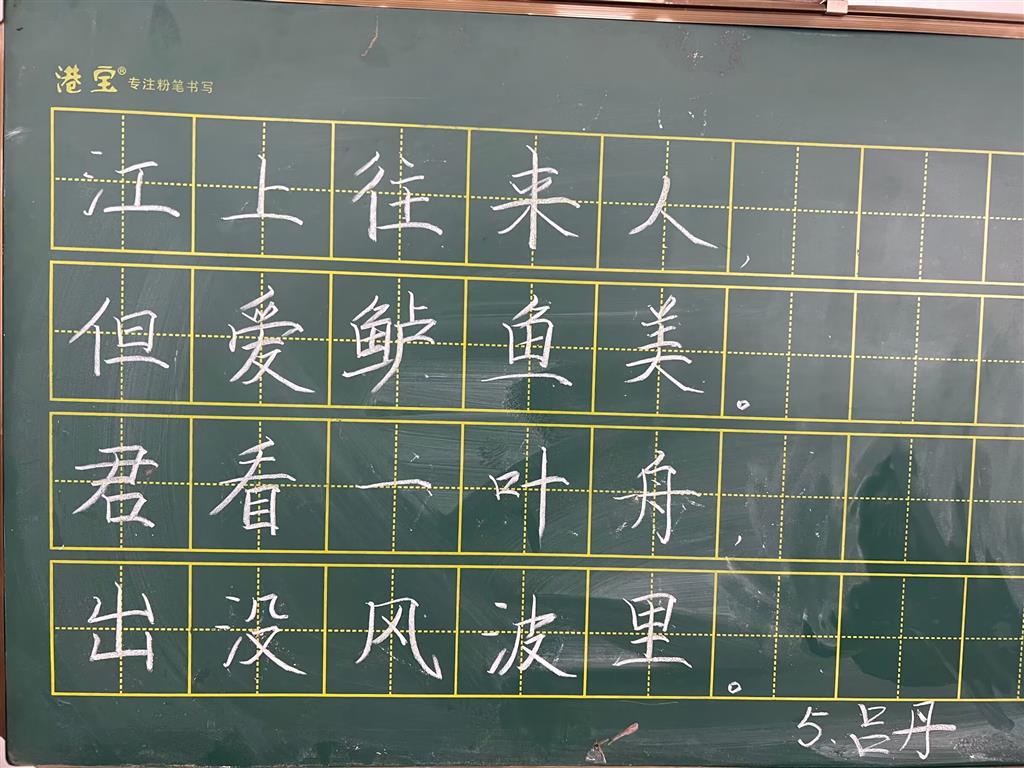 港宝® 专注粉笔书写
江上往来人,
但爱鲈鱼美。
君看一叶舟,
出没风波里。
5.吕丹